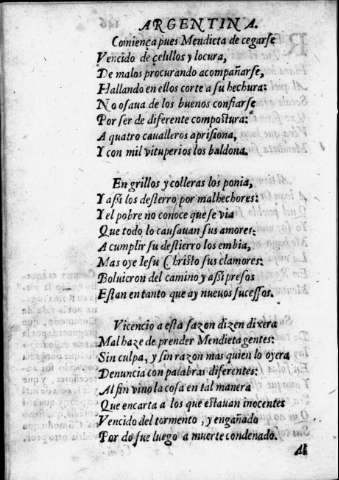 ARGENTINA.
Comiença pues Mendieta de cegarse
Vencido de çelillos y locura,
De malos procurando acompañarse,
Hallando en ellos corte a su hechura:
No osaua de los buenos confiarse
Por ser de diferente compostura:
A quatro caualleros aprisiona,
Y con mil vituperios los baldona.
En grillos y colleras los ponia,
Y assi los desterro por malhechores:
Y el pobre no conoce que se via
Que todo lo causauan sus amores:
A cumplir su destierro los embia,
Mas oye Iesu Christo sus clamores:
Boluieron del camino y assi presos
Estan en tanto que ay nueuos sucessos.
Vicencio a esta sazon dizen dixera
Mal haze de prender Mendieta gentes:
Sin culpa, y sin razon mas quien lo oyera
Denuncia con palabras diferentes:
Al fin vino la cosa en tal manera
Que encarta a los que estauan inocentes
Vencido del tormento, y engañado
Por do fue luego a muerte condenado.
Al